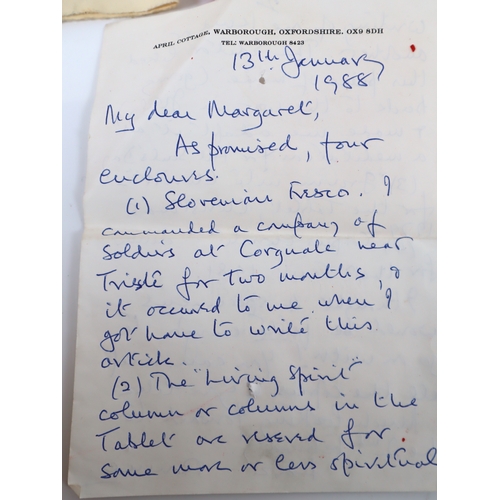 APRIL COTTAGE, WARBOROUGH, OXFORDSHIRE. OX9 8DH
TEL: WARBOROUGH 8423
13th January
1988
My dear Margaret,
As promised, four
enclosures.
(1) Slovenian Fresco. I
commanded a company of
soldiers at Corgnale near
Trieste for two months, &
it occurred to me when I
got home to write this
article.
(2) The "Living Spirit"
column or columns in the
Tablet are reserved for
some more or less spiritual